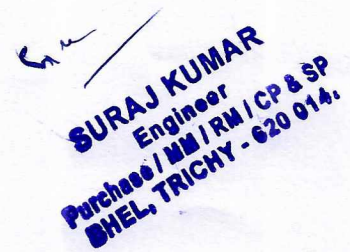 SURAJ KUMAR
Engineer
Purchase / MM / RM / CP & SP
BHEL, TRICHY - 620 014.